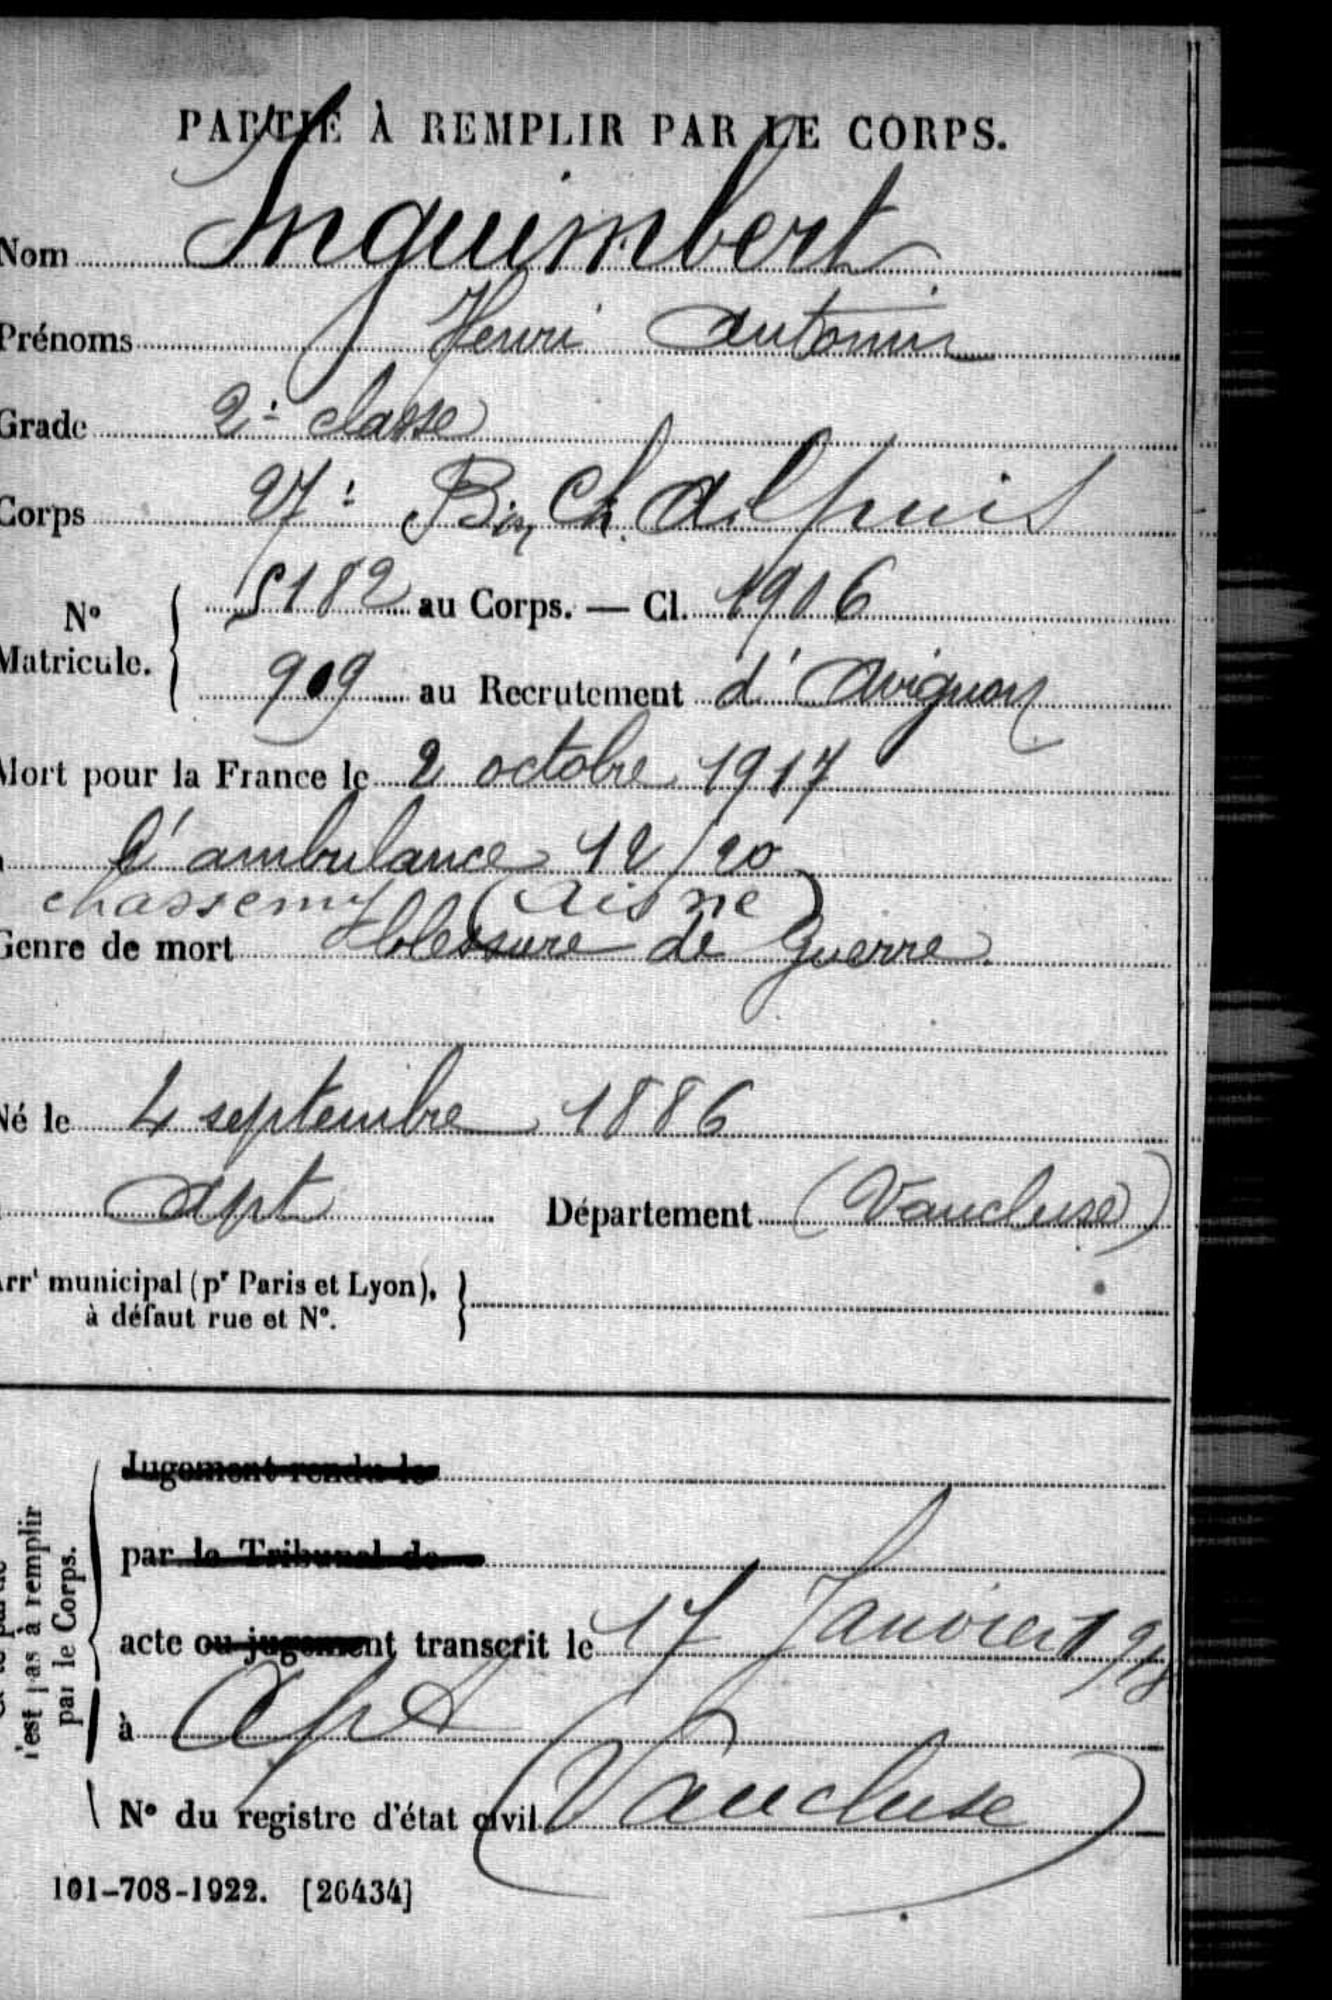 PARTIE À REMPLIR PAR LE CORPS.
Nom Inguimbert
Prénoms Henri Antonin
Grade 2e classe
Corps 27e Bon Ch. Alpins
No Matricule. 5182 au Corps. — Cl. 1906
909 au Recrutement d'Avignon
Mort pour la France le 2 octobre 1917
l'ambulance 12/20
chassemy (Aisne)
Genre de mort blessure de Guerre
Né le 4 septembre 1886
Apt Département (Vaucluse)
Arrt municipal (pr Paris et Lyon),
à défaut rue et No.
Jugement rendu le
par le Tribunal de
acte ou jugement transcrit le 17 Janvier 1918
à Apt
(Vaucluse)
No du registre d'état civil
n'est pas à remplir
par le Corps.
101-708-1922. [26434]